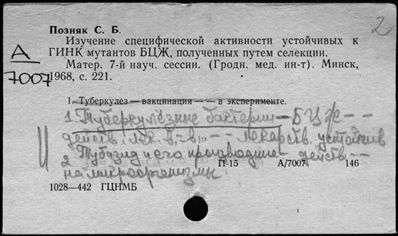 2
Позняк С. Б.
А
7007
Изучение специфической активности устойчивых к
ГИНК мутантов БЦЖ, полученных путем селекции.
Матер. 7-й науч. сессии. (Гродн. мед. ин-т). Минск,
1968, с. 221.
1. Туберкулез — вакцинация — — в эксперименте.
1. Туберкулезные бактерии — БЦЖ —
действ. лек. в.-в. — — лекарств. устойчив
2 Тубазид и его производные — действ. —
П-15 А/7007 146
на микроорганизмы
1028—442 ГЦНМБ